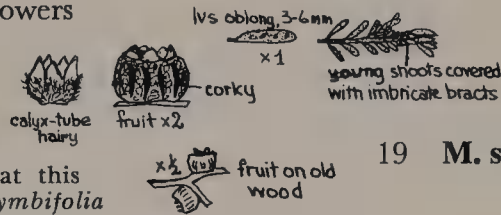 owers
lvs oblong, 3-6mm
x1
young shoots covered
with imbricate bracts
corky
calyx-tube
hairy
fruit x2
19 M. s
at this
ymbifolia
x½
fruit on old
wood